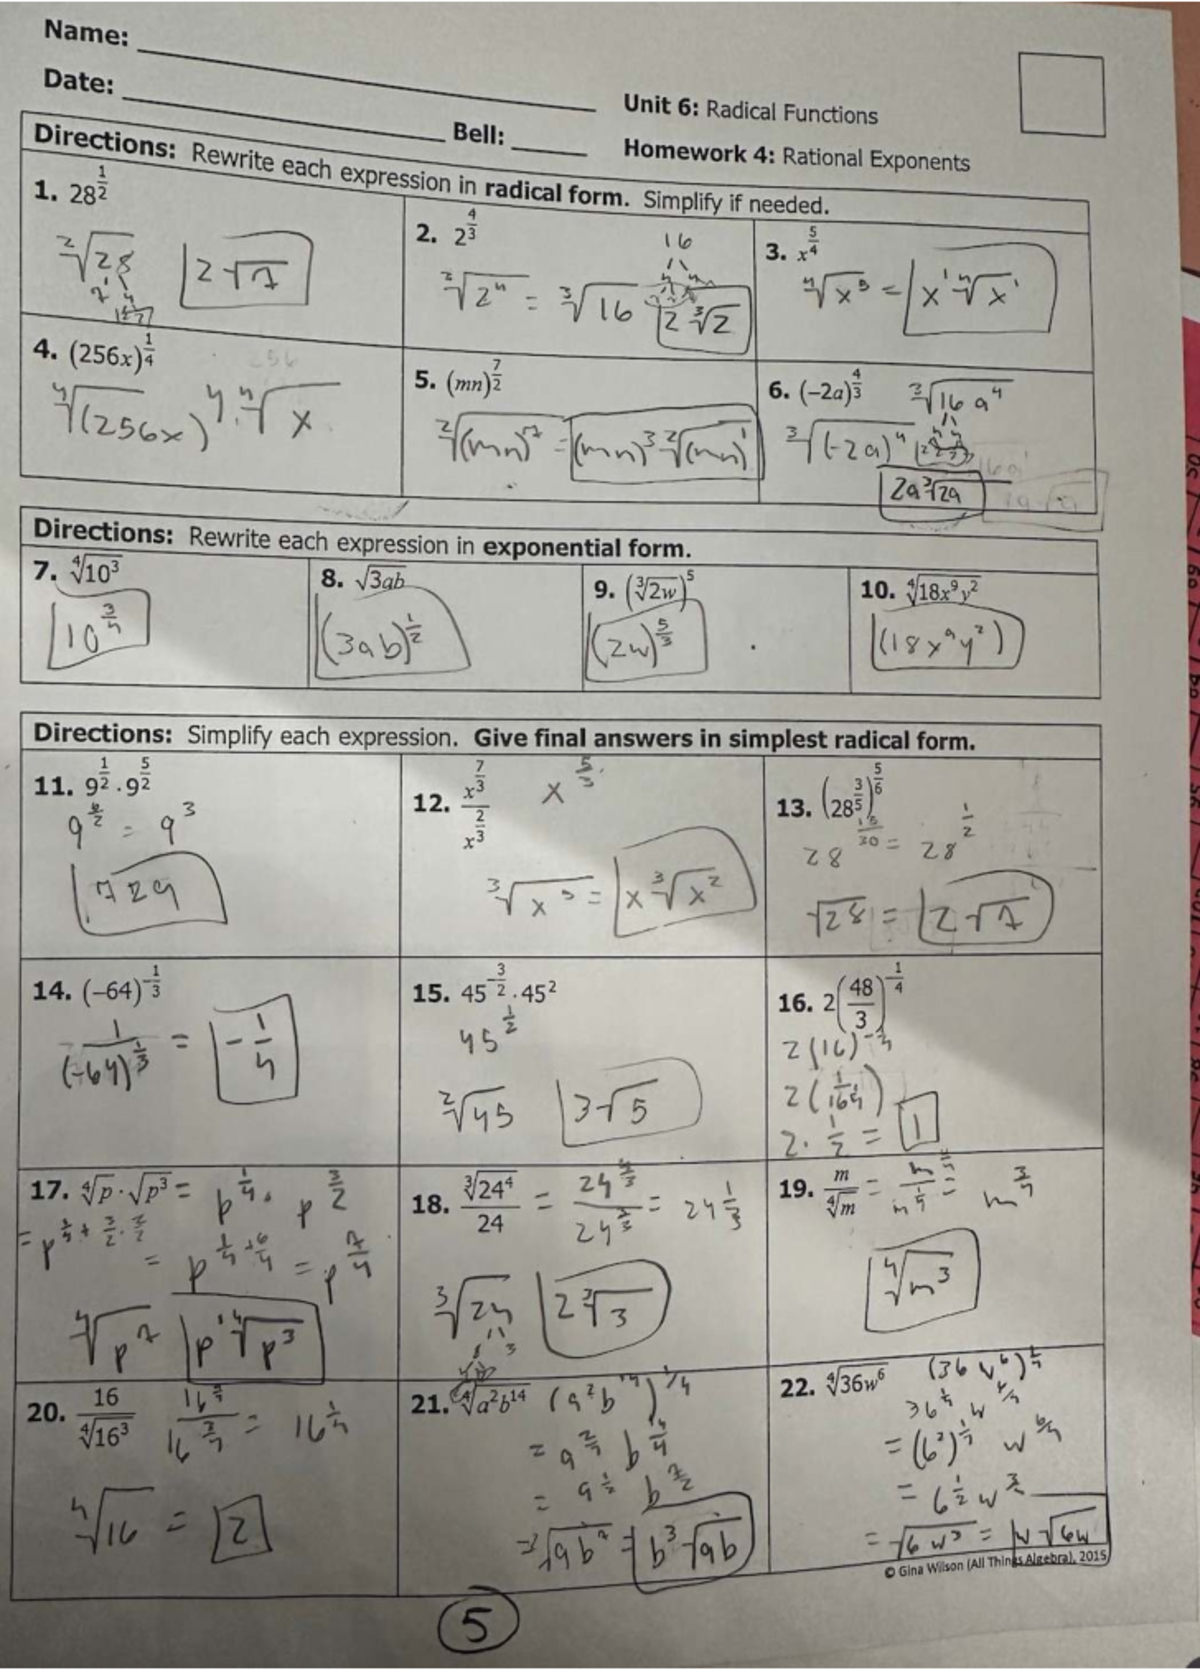 Name:
Date:
Bell:
Unit 6: Radical Functions
Homework 4: Rational Exponents
Directions: Rewrite each expression in radical form. Simplify if needed.
1. 28^(1/2)
²√28 2√7
2. 2^(4/3)
16
²√2⁴ = ³√16 2 ³√2
3. x^(5/4)
⁴√x⁵ = x¹ ⁴√x¹
4. (256x)^(1/4)
256
⁴√(256x) 4 · ⁴√x
5. (mn)^(7/2)
²√(mn)⁷ = (mn)³ ²√(mn)¹
6. (−2a)^(4/3) ³√16a⁴
³√(-2a)⁴
2a ³√2a
Directions: Rewrite each expression in exponential form.
7. ⁴√10³
10^(3/4)
8. √3ab
(3ab)^(1/2)
9. (³√2w)⁵
(2w)^(5/3)
10. ⁴√18x⁹y²
(18x⁹y²)
Directions: Simplify each expression. Give final answers in simplest radical form.
11. 9^(1/2) · 9^(5/2)
9^(6/2) = 9³
729
12. x^(7/3) / x^(2/3) x^(5/3)
³√x⁵ = x ³√x²
13. (28^(3/5))^(5/6)
28^(15/30) = 28^(1/2)
√28 = 2√7
14. (−64)^(−1/3)
1/(-64)^(1/3) = -1/4
15. 45^(−3/2) · 45²
45^(1/2)
²√45 3√5
16. 2(48/3)^(−1/4)
2(16)^(-1/4)
2(1/16^(1/4))
2 · 1/2 = 1
17. ⁴√p · √p³ = p^(1/4) · p^(3/2)
= p^(1/4 + 3/2 · 2/2)
= p^(1/4 + 6/4) = p^(7/4)
⁴√p⁷ p¹ ⁴√p³
18. ³√24⁴ / 24 = 24^(4/3) / 24^(3/3) = 24^(1/3)
³√24 2 ³√3
8 3
19. m / ⁴√m = m / m^(1/4) = m^(3/4)
⁴√m³
20. 16 / ⁴√16³ 16^(4/4) / 16^(3/4) = 16^(1/4)
⁴√16 = 2
21. ⁴√a²b¹⁴ (a²b¹⁴)^(1/4)
= a^(2/4) b^(14/4)
= a^(1/2) b^(7/2)
= ²√ab⁷ = b³√ab
22. ⁴√36w⁶ (36w⁶)^(1/4)
36^(1/4) w^(6/4)
= (6²)^(1/4) w^(6/4)
= 6^(1/2) w^(3/2)
= √6w³ = w√6w
© Gina Wilson (All Things Algebra), 2015
5